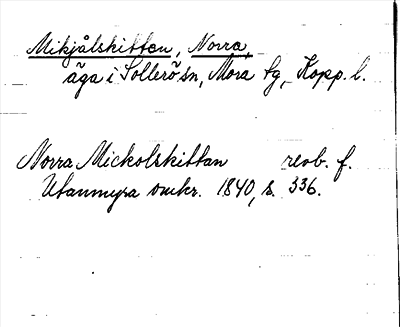 Mikjålskittan, Norra,
äga i Sollerö sn, Mora tg, Kopp. l.
Norra Mickolskittan revb. f.
Utanmyra omkr. 1840, s. 336.